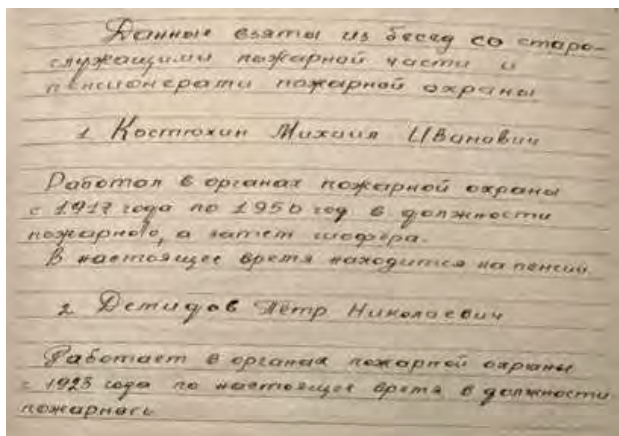 Данные взяты из бесед со старо-
служащими пожарной части и
пенсионерами пожарной охраны
1 Костюхин Михаил Иванович
Работал в органах пожарной охраны
с 1917 года по 1950 год в должности
пожарного, а затем шофёра.
В настоящее время находится на пенсии
2 Демидов Пётр Николаевич
Работает в органах пожарной охраны
с 1925 года по настоящее время в должности
пожарного